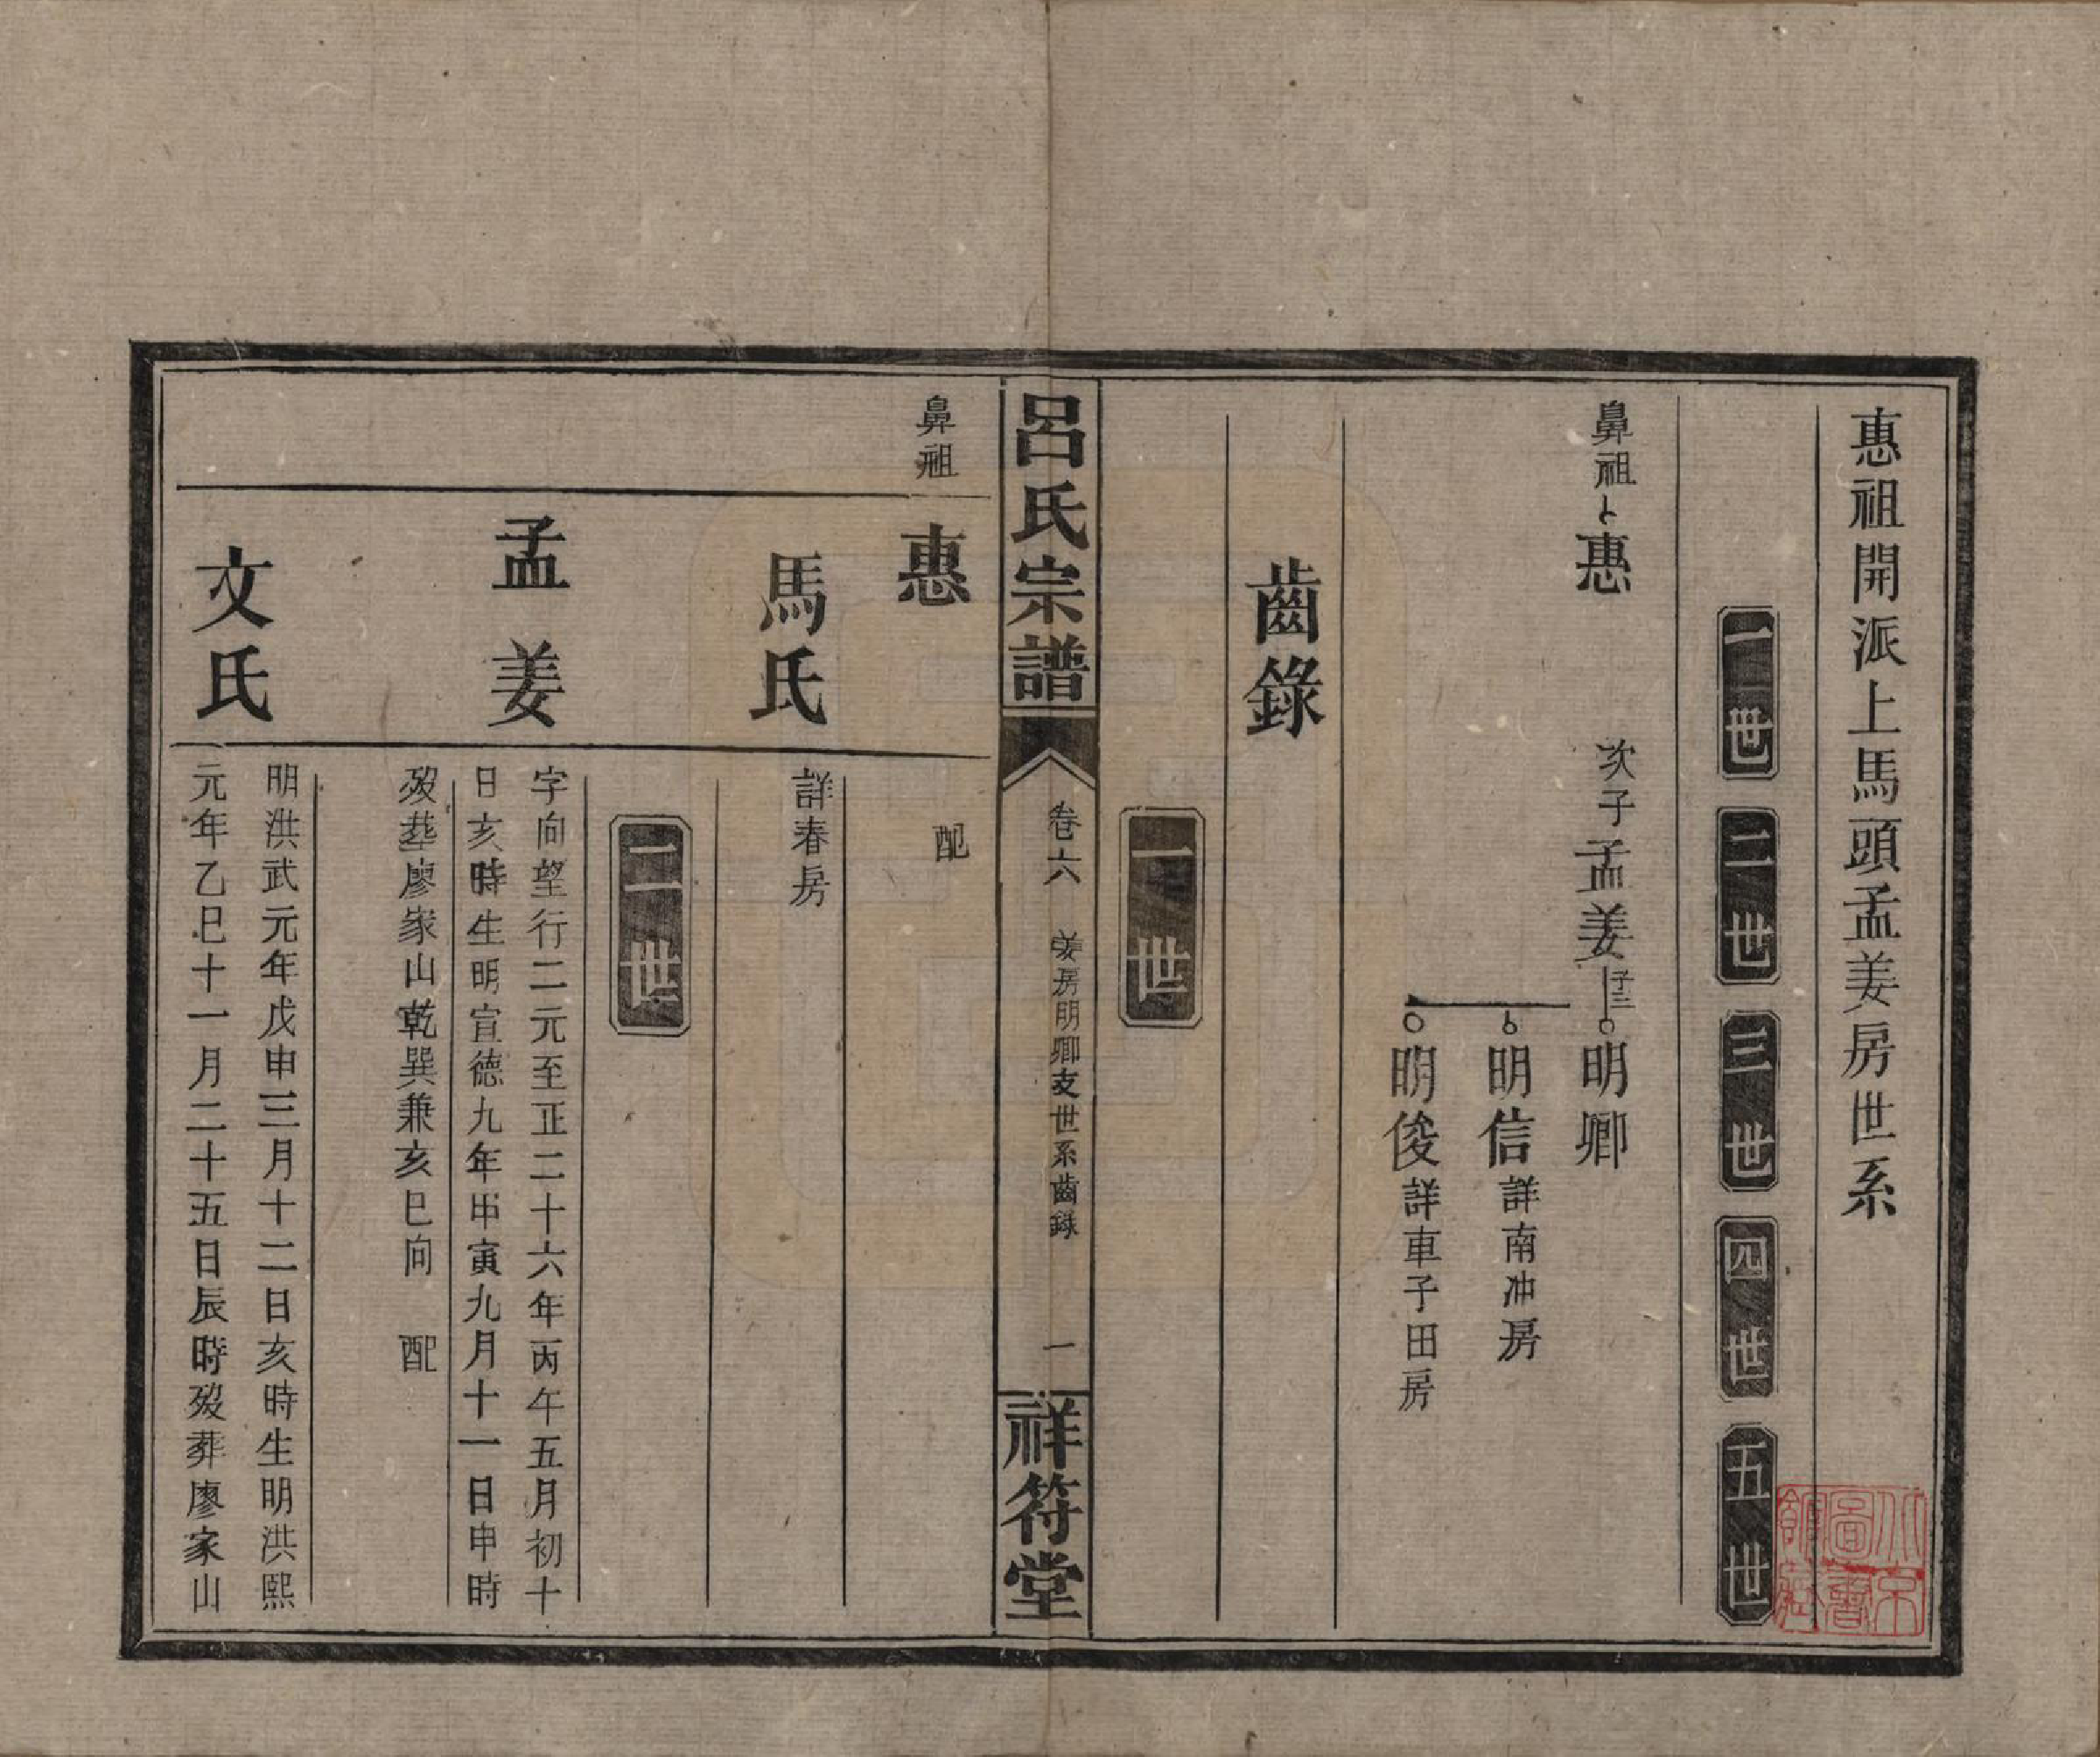 惠祖開派上馬頭孟姜房世系
一世
二世
三世
四世
五世
鼻祖
惠
次子孟姜
子三
明卿
明信詳南冲房
明俊詳車子田房
齒錄
一世
呂氏宗譜
卷六
姜房明卿支世系齒錄
一
祥符堂
鼻祖
惠
配
馬氏
詳春房
二世
孟姜
字向望行二元至正二十六年丙午五月初十
日亥時生明宣德九年甲寅九月十一日申時
歿塟廖家山乾巽兼亥巳向 配
文氏
明洪武元年戊申三月十二日亥時生明洪熙
元年乙巳十一月二十五日辰時歿葬廖家山
北京
圖書
館藏